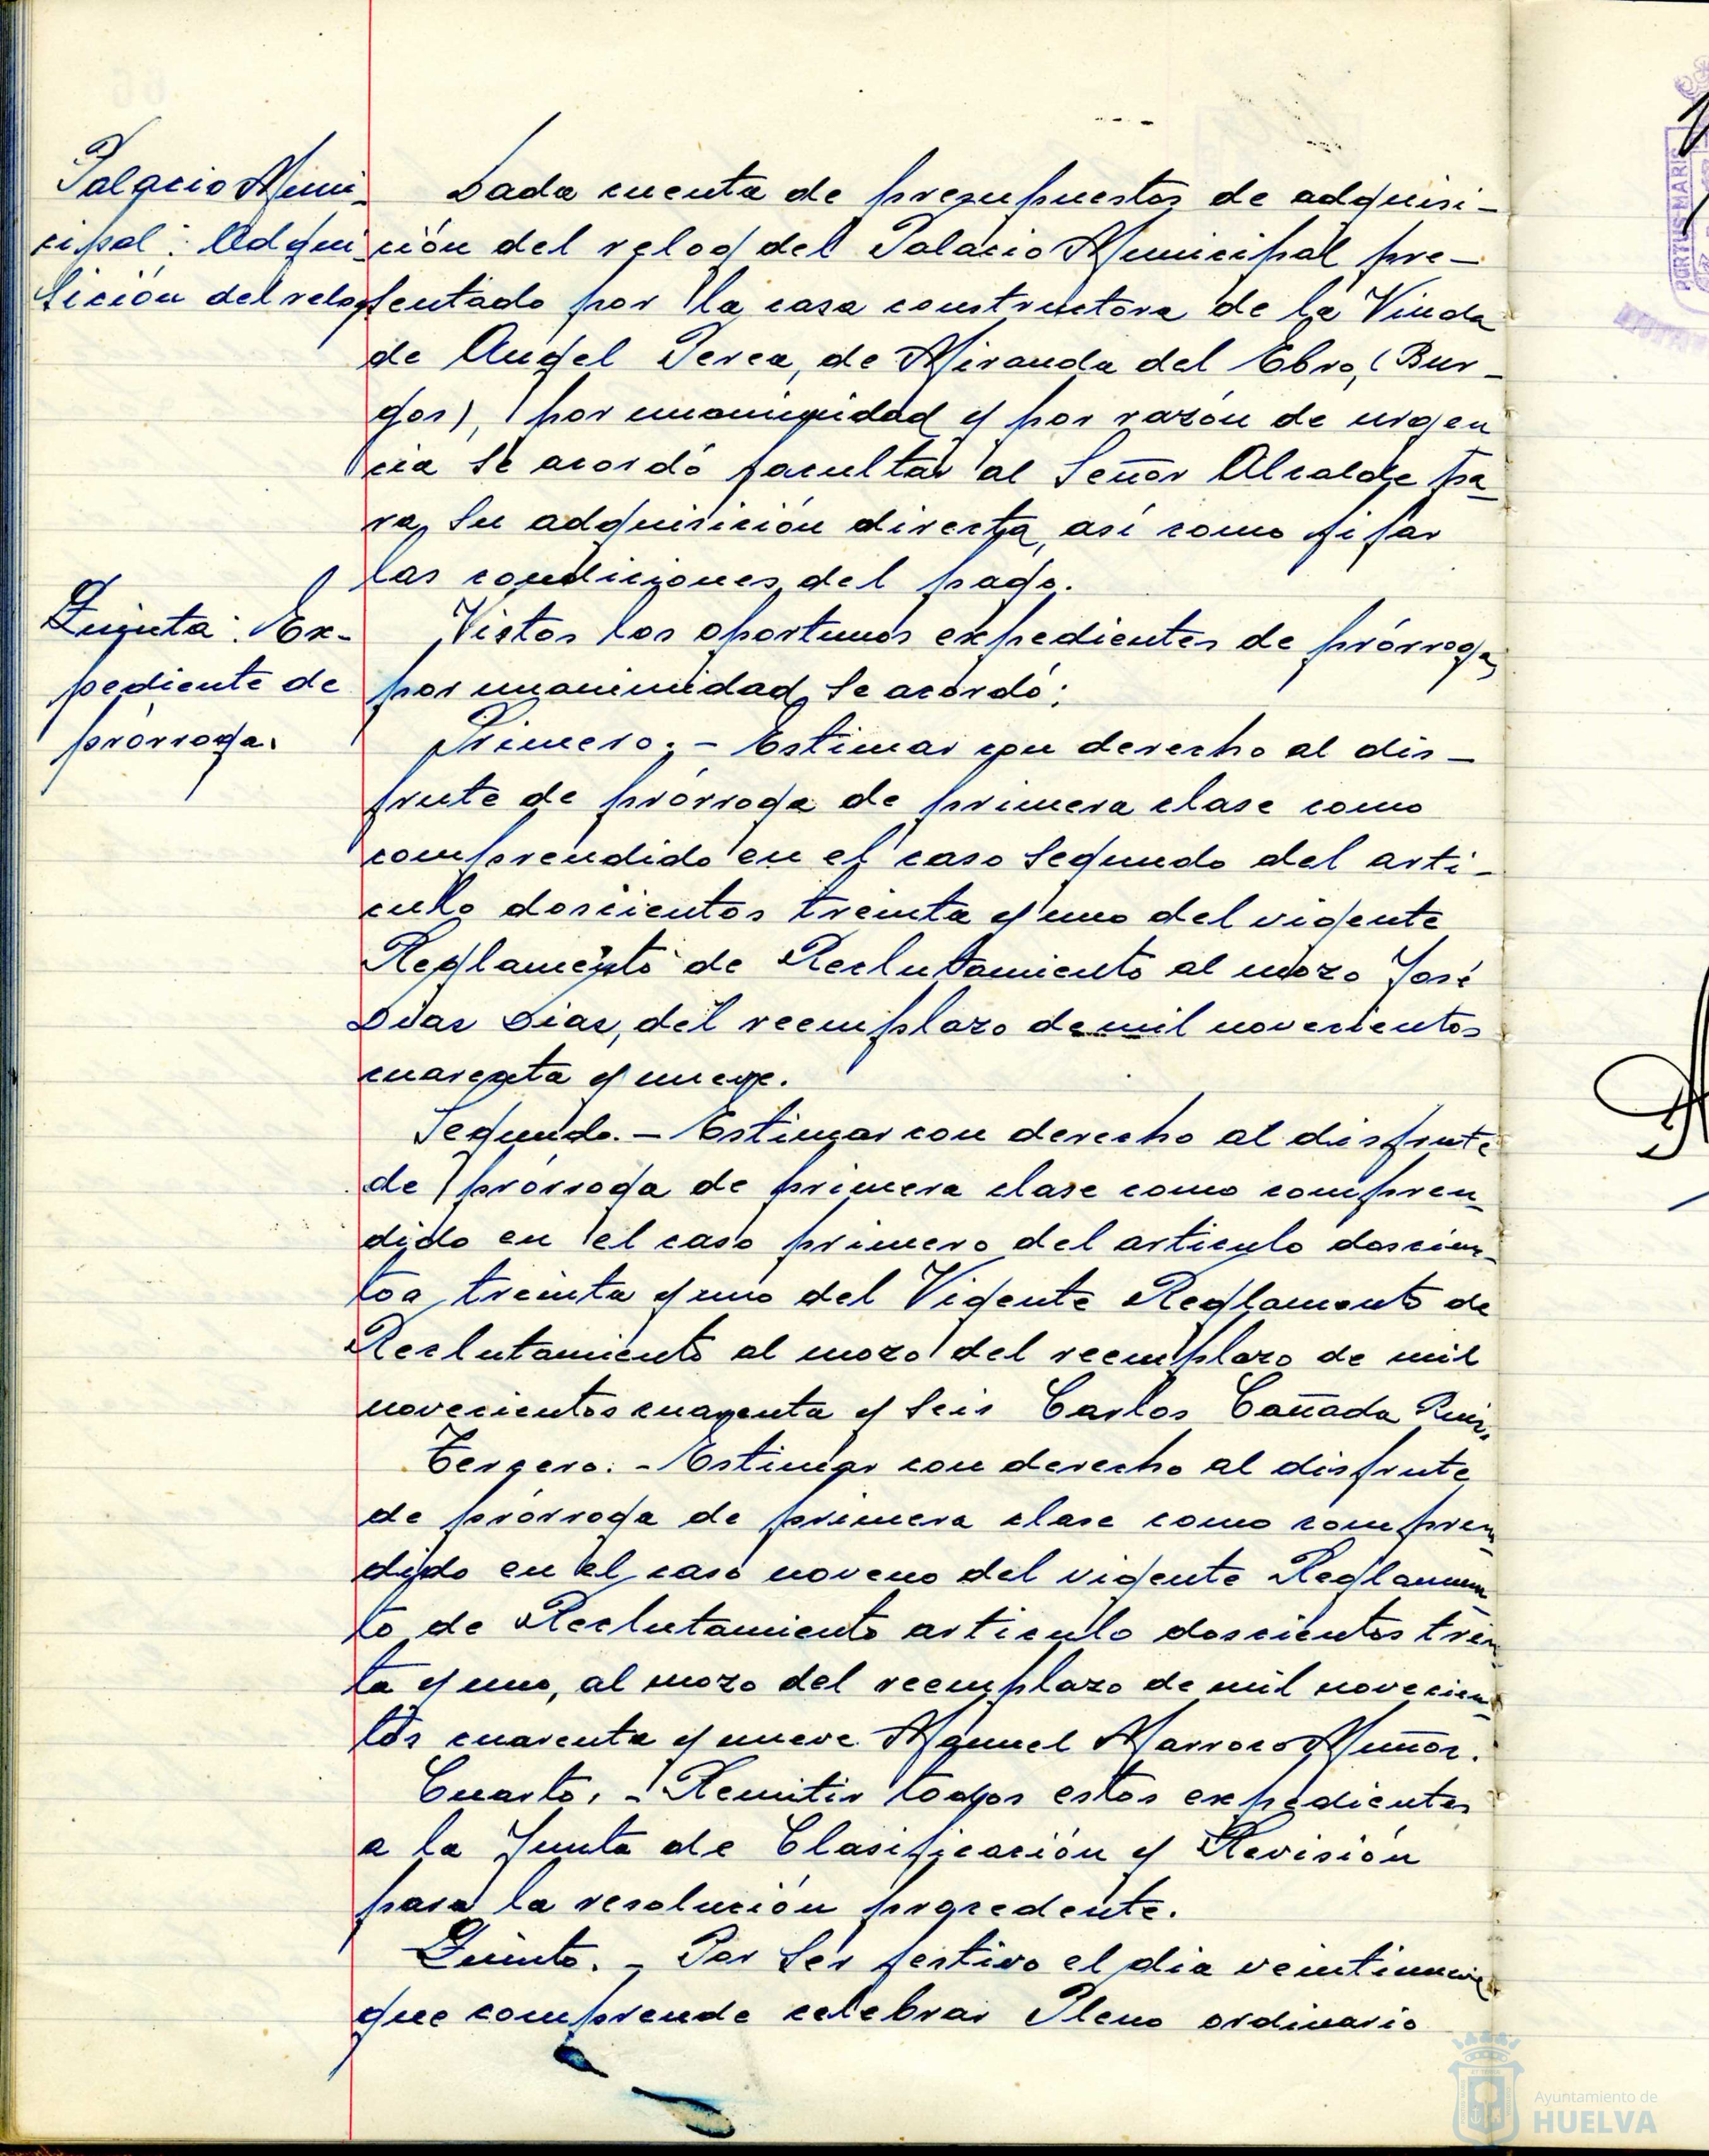 Palacio Muni-
cipal: Adqui-
sición del reloj
Dada cuenta de presupuestos de adquisi-
ción del reloj del Palacio Municipal pre-
sentado por la casa constructora de la Viuda
de Angel Perea, de Miranda del Ebro, (Bur-
gos), por unanimidad y por razón de urgen
cia se acordó facultar al Señor Alcalde pa-
ra su adquisición directa, así como fijar
las condiciones del pago.
Quinta: Ex-
pediente de
prórroga.
Vistos los oportunos expedientes de prórroga,
por unanimidad, se acordó:
Primero. - Estimar con derecho al dis-
frute de prórroga de primera clase como
comprendido en el caso segundo del arti-
culo doscientos treinta y uno del vigente
Reglamento de Reclutamiento al mozo José
Diaz Diaz, del reemplazo de mil novecientos
cuarenta y nueve.
Segundo. - Estimar con derecho al disfrute
de prórroga de primera clase como compren-
dido en el caso primero del articulo doscien-
tos treinta y uno del Vigente Reglamento de
Reclutamiento al mozo del reemplazo de mil
novecientos cuarenta y seis Carlos Cañada Ruiz.
Tercero. - Estimar con derecho al disfrute
de prórroga de primera clase como compren-
dido en el caso noveno del vigente Reglamen-
to de Reclutamiento articulo doscientos trein-
ta y uno, al mozo del reemplazo de mil novecien-
tos cuarenta y nueve Manuel Marroco Muñoz.
Cuarto. - Remitir todos estos expedientes
a la Junta de Clasificación y Revisión
para la resolución procedente.
Quinto. - Por ser festivo el dia veintinueve
que comprende celebrar Pleno ordinario
PORTUS MARIS
Ayuntamiento de
HUELVA